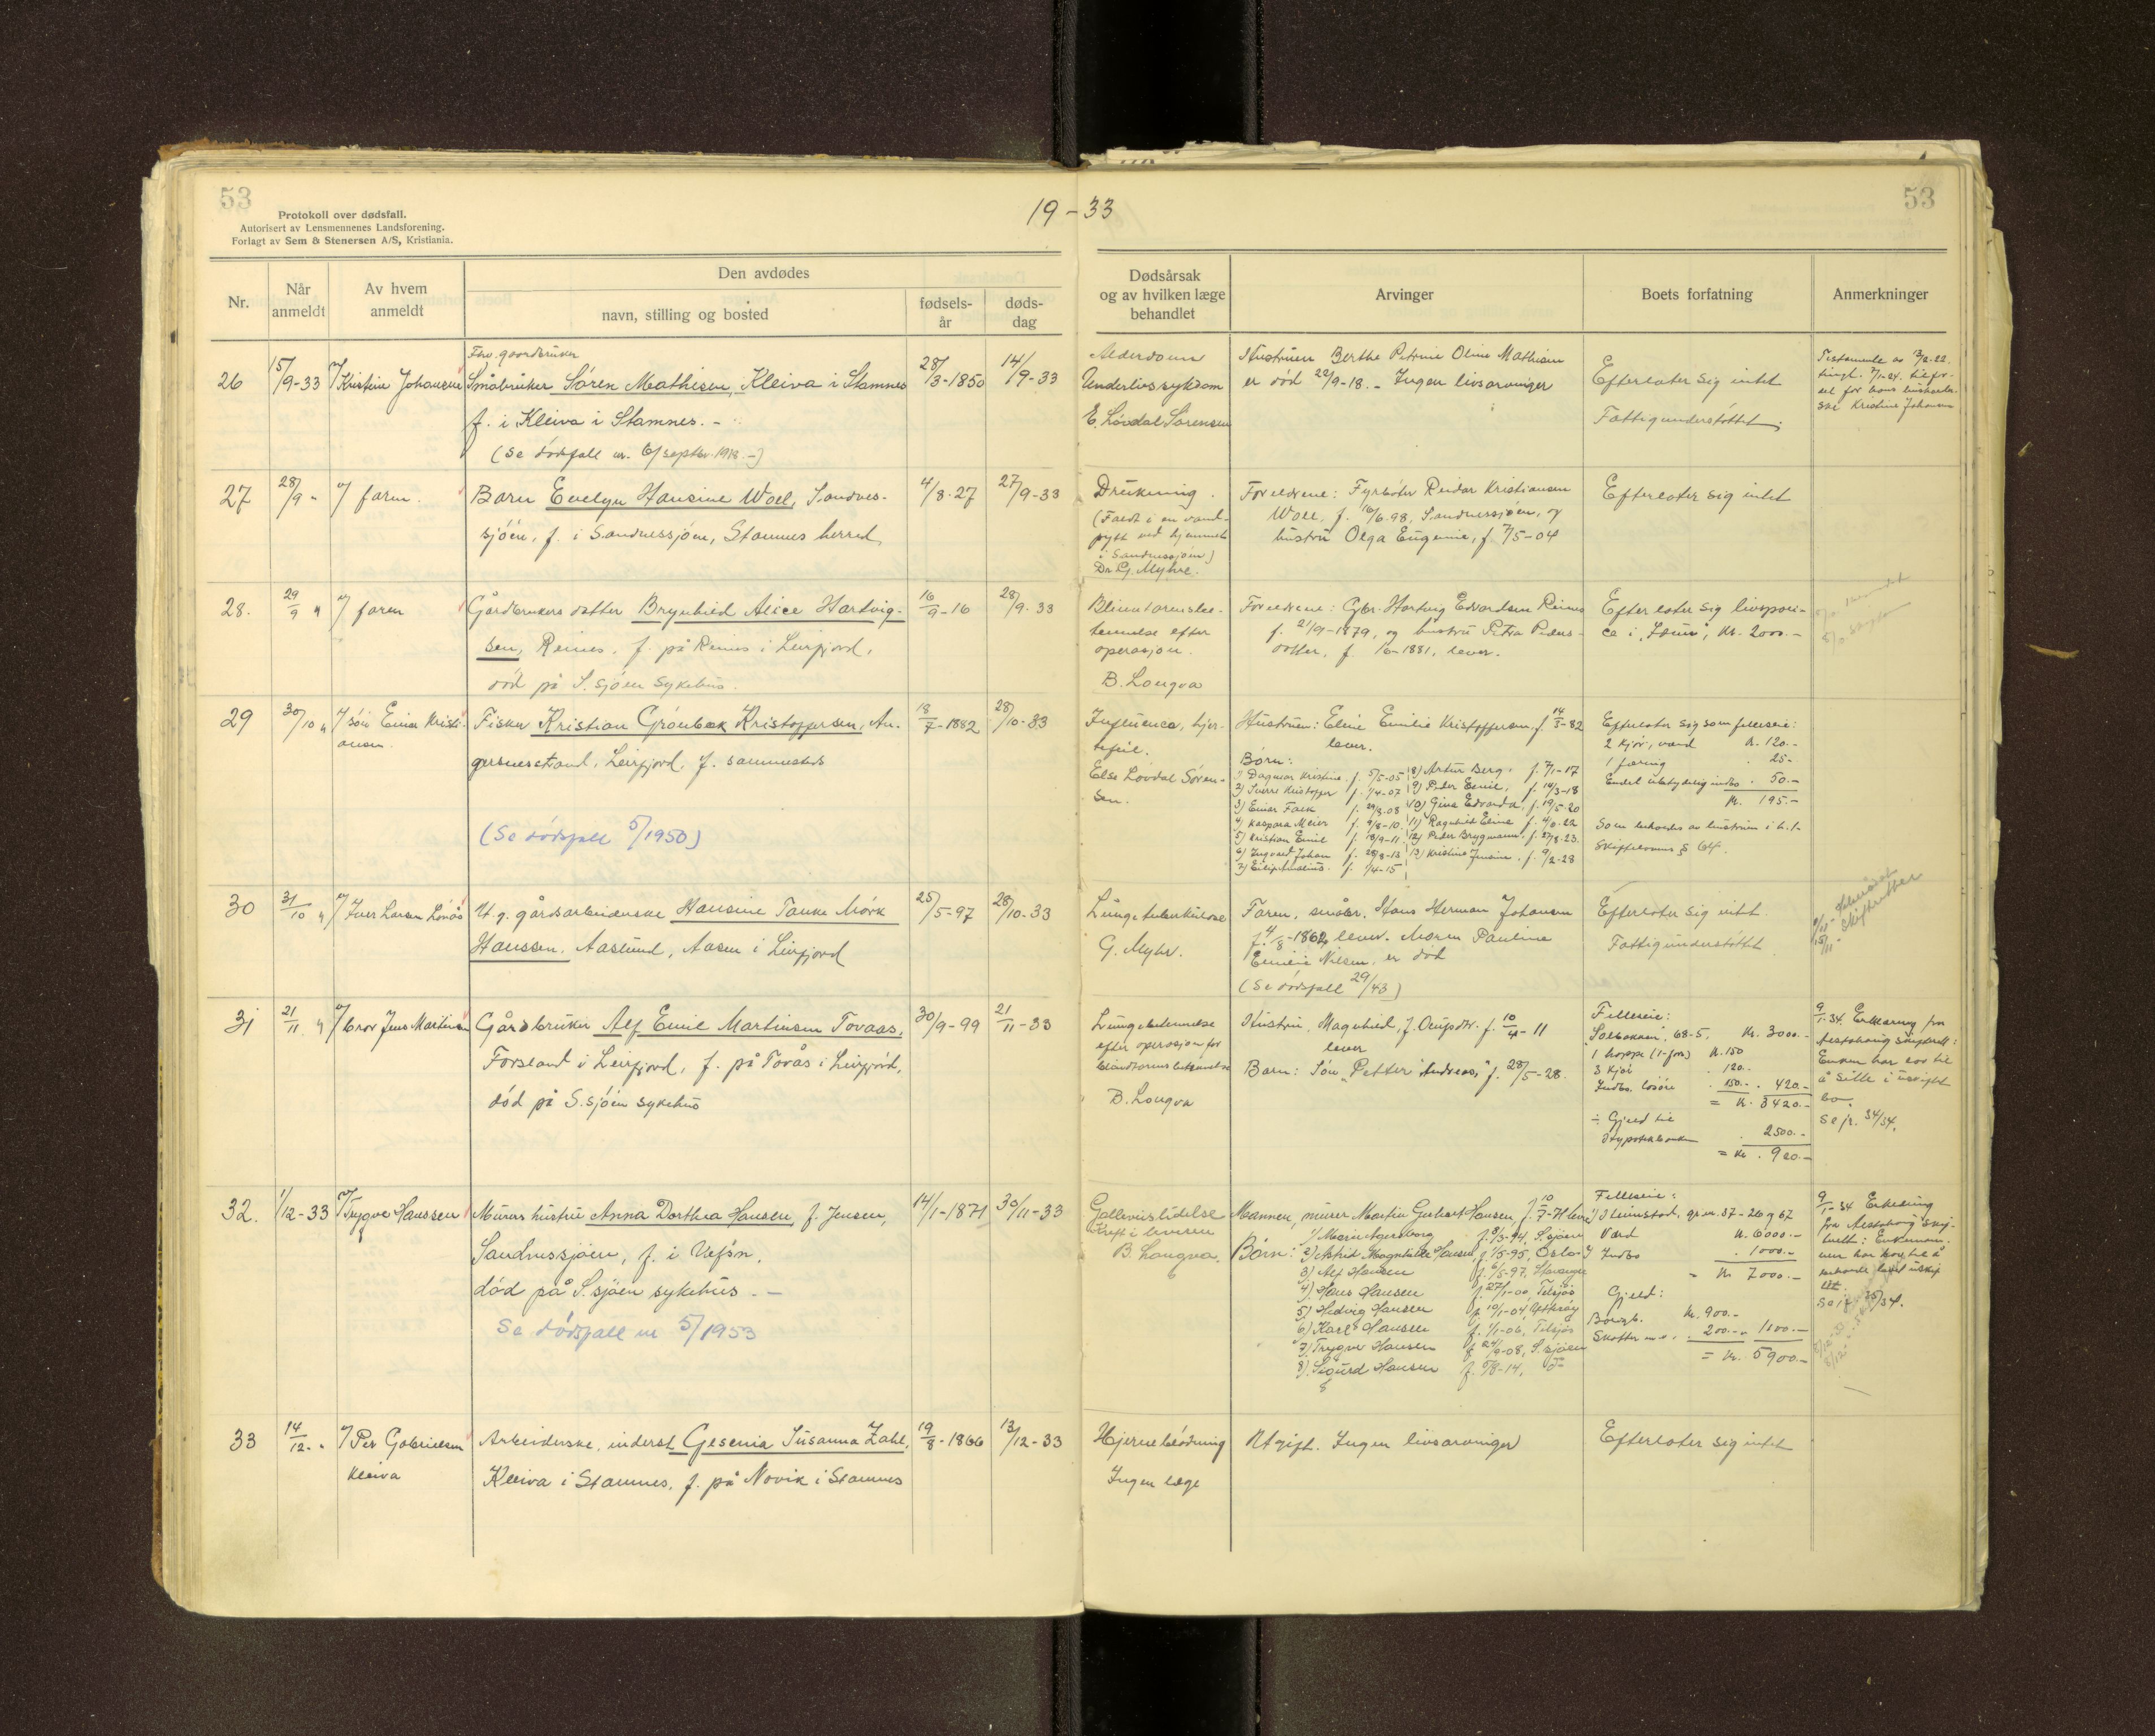 53
Protokoll over dødsfall.
Autorisert av Lensmennenes Landsforening.
Forlagt av Sem & Stenersen A/S, Kristiania.
19-33
53
Nr.
Når anmeldt
Av hvem anmeldt
Den avdødes
navn, stilling og bosted
fødsels-år
døds-dag
Dødsårsak og av hvilken læge behandlet
Arvinger
Boets forfatning
Anmerkninger
26
15/9-33
Kristine Johansen
Forv. gaardbruker
Småbruker Sören Mathisen, Kleiva i Stamnes
f. i Kleiva i Stamnes. -
(Se dödsfall nr. 6/septbr. 1918. -)
28/3-1850
14/9-33
Alderdom
Underlivssykdom
E. Lövdal Sörensen
Hustruen Berthe Petrine Oline Mathisen
er död 22/9-18. - Ingen livsarvinger
Efterlater sig intet
Fattigunderstöttet.
Testamente av
tingl. 7/1-24. til for-
del for hans
Kristine Johansen
27
28/9 "
faren.
Barn Evelyn Hansine Woll, Sandnes-
sjöen, f. i Sandnessjöen, Stamnes herred
4/8-27
27/9-33
Drukning.
(Faldt i en vand-
pytt ved hjemmet
i Sandnessjöen)
Dr. G. Myhre.
Foreldrene: Fyrböter Reidar Kristiansen
Woll, f. 16/6.98, Sandnessjöen, og
hustru Olga Eugenie, f. 7/5-04
Efterlater sig intet
28.
29/9 "
faren
Gårdbrukers datter Brynhild Alice Hartvig-
sen, Reines, f. på Reines i Leirfjord,
död på S.sjöen sykehus.
16/9-16
28/9-33
Blindtarmsbe-
tennelse efter
operasjon.
B. Longva
Foreldrene: Gbr. Hartvig Edvardsen Reines
f. 21/9-1879, og hustru Petra Peders-
datter, f. /6-1881, lever.
Efterlater sig livspoli-
ce i "Idun", kr. 2000.-
29
30/10 "
sön Einar Kristi-
ansen.
Fisker Kristian Grönbæk Kristoffersen, An-
gersnesstrand, Leirfjord, f. sammesteds
(Se dödsfall 5/1950)
18/7-1882
28/10-33
Influenca, hjer-
tefeil.
Else Lövdal Sören-
sen.
Hustruen: Eline Emilie Kristoffersen, f. 14/3-82
lever.
Börn:
1) Dagmar Kristine f. 5/5-05
2) Sverre Kristoffer f. /4-07
3) Einar Falk f. 29/8.08
4) Kaspara Meier f. 9/8-10
5) Kristian Emil f. 18/9-11
6) Ingvald Johan f. 28/8-13
7) f. /4-15
8) Artur Berg. f. 7/1-17
9) Peder Emil, f. 14/3-18
10) Gine Edvarda, f. 19/5-20
11) Ragnhild Eline f. 4/-22
12) Peder Brygmann, f. 27/8-23.
13) Kristine Jensine. f. 9/2-28
Efterlater sig som felleseie:
2 kjör, værd kr. 120.-
1 færing . 25.-
Endel ubetydelig indbo . 50.-
kr. 195.-
Som beholdes av hustruen i h.t.
Skifteloven § 64.
30
31/10 "
Iver Larsen Lövås
U. g. gårdsarbeiderske Hansine Tanke Mörk
Hanssen, Aaslund, Aasen i Leirfjord
25/5-97
28/10-33
Lungetuberkulose
G. Myhr.
Faren, småbr. Hans Herman Johansen
f. 4/8-1862, lever. Moren Pauline
Emelie Nilsen, er död
(Se dödsfall 29/43)
Efterlater sig intet
Fattigunderstöttet
Skifteretten
31
21/11 "
bror Jens Martinsen
Gårdbruker Alf Emil Martinsen Tovaas,
Forsland i Leirfjord, f. på Tovås i Leirfjord,
död på S.sjöen sykehus
30/9-99
21/11-33
Lungebetennelse
efter operasjon for
blindtarmsbetennelse
B. Longva
Hustru, Magnhild, f. f. 10/4-11
lever
Barn: Sön "Petter Andreas," f. 28/5-28.
Felleseie:
"Solbakken", 68-5, kr. 3000.-
1 hoppe kr. 150
3 kjör . 120.-
Indbo. lösöre . 150.- . 420.-
= kr. 3420.-
÷ Gjeld til
Hypotekbanken . 2500.-
= kr. 920.-
9/1-34 Erklæring fra
Alstahaug skifterett:
Enken har lov til
å sitte i uskiftet
bo.
Se jr. 34/34.
32.
1/12-33
Trygve Hanssen
Murers hustru Anna Dorthea Hansen, f. Jensen,
Sandnessjöen, f. i Vefsn,
död på S.sjöen sykehus. -
Se dödsfall nr 5/1953
14/1-1871
30/11-33
Galleveislidelse
Kreft i leveren
B. Longva.
Mannen, murer Martin Gerhart Hansen, f. 10/7-71 lever
Börn:
1) Marie Agersborg f. 9/3-94, S.sjöen
2) Astrid Magnhilde Hansen f. 1/5-95, Oslo
3) Alf Hansen f. 6/5-97, Stavanger
4) Hans Hansen f. 27/1-00,
5) Hedvig Hansen f. 10/1-04,
6) Karl Hansen f. 1/1-06,
7) Trygve Hansen f. 24/9-08, S.sjöen
8) Sigurd Hansen f. 5/8-14,
Felleseie:
Heimstad, gr.nr. 37-26 og 67
Verd kr. 6000.-
Indbo . 1000.-
= kr 7000.-
Gjeld:
kr. 900.-
Skatter m.v. . 200.- . 1100.-
= kr. 5900.-
9/1-34 Erklæring
fra Alstahaug skif-
terett: Enkeman-
nen har lov til å
beholde boet uskif-
tet.
Se jr. 35/34.
33
14/12 - "
Per Gabrielsen
Kleiva
Arbeiderske, inderst Gesenia Susanna Zahl,
Kleiva i Stamnes, f. på Novik i Stamnes
19/8-1866
13/12-33
Hjerneblödning
Ingen læge
Ugift. Ingen livsarvinger
Efterlater sig intet